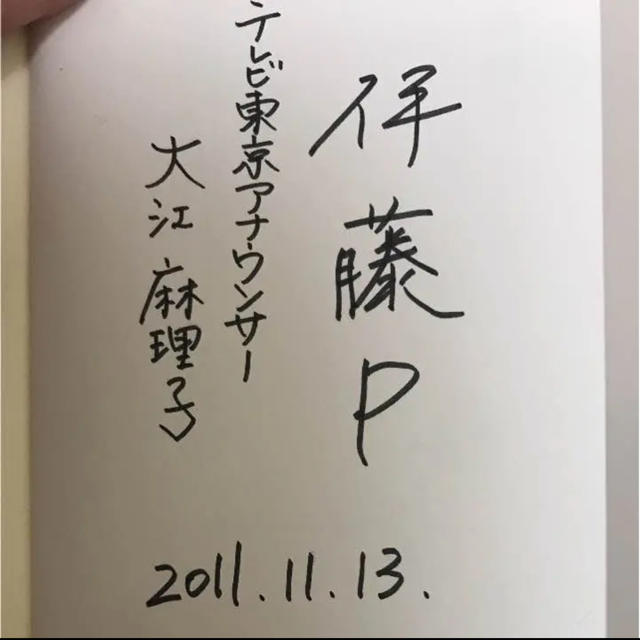 伊藤P
テレビ東京アナウンサー
大江麻理子
2011.11.13.